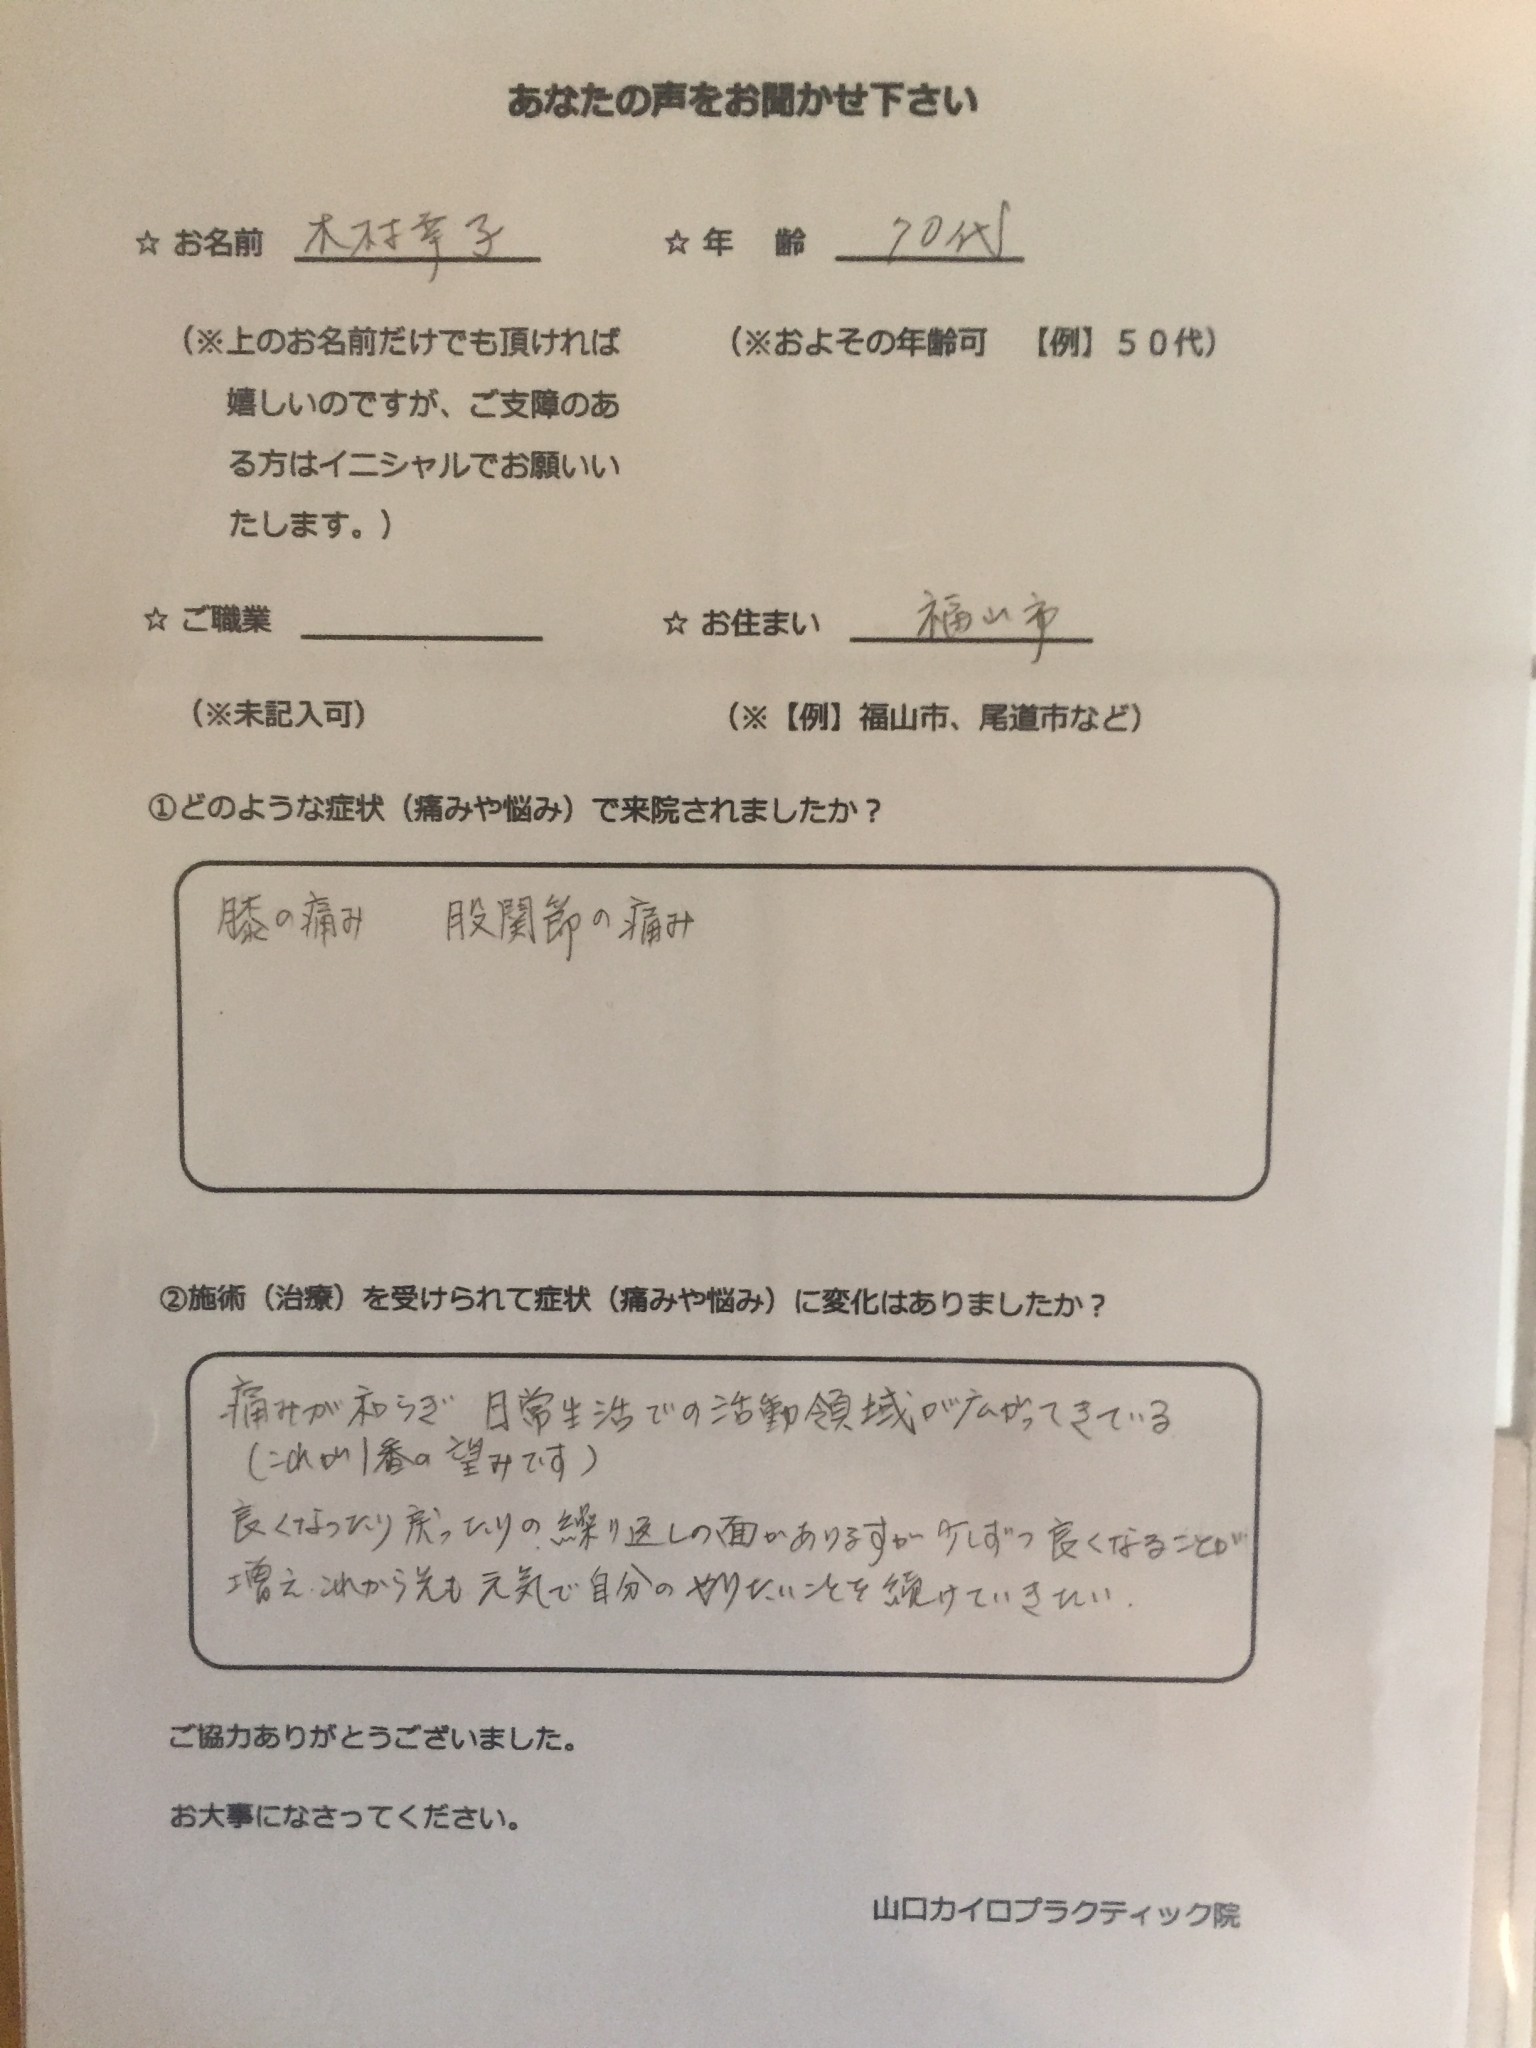 あなたの声をお聞かせ下さい
☆ お名前 木村幸子 ☆ 年 齢 70代
（※上のお名前だけでも頂ければ （※およその年齢可 【例】５０代）
嬉しいのですが、ご支障のあ
る方はイニシャルでお願いい
たします。）
☆ ご職業 ☆ お住まい 福山市
（※未記入可） （※【例】福山市、尾道市など）
①どのような症状（痛みや悩み）で来院されましたか？
膝の痛み 股関節の痛み
②施術（治療）を受けられて症状（痛みや悩み）に変化はありましたか？
痛みが和らぎ 日常生活での活動領域が広がってきている
（これが1番の望みです）
良くなったり戻ったりの繰り返しの面がありますが少しずつ良くなることが
増え、これから先も元気で自分のやりたいことを続けていきたい.
ご協力ありがとうございました。
お大事になさってください。
山口カイロプラクティック院